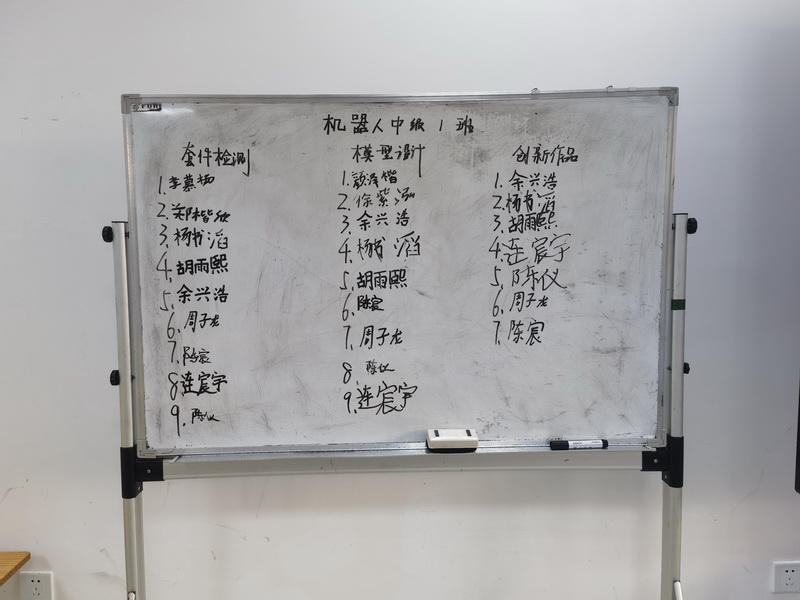 机器人中级1班
套件检测
1.李慕杨
2.郑楷欣
3.杨书滔
4.胡雨熙
5.余兴浩
6.周子龙
7.陈宸
8.连宸宇
9.陈仪
模型设计
1.顾泽楷
2.徐紫泓
3.余兴浩
4.杨书滔
5.胡雨熙
6.陈宸
7.周子龙
8.陈仪
9.连宸宇
创新作品
1.余兴浩
2.杨书滔
3.胡雨熙
4.连宸宇
5.陈仪
6.周子龙
7.陈宸